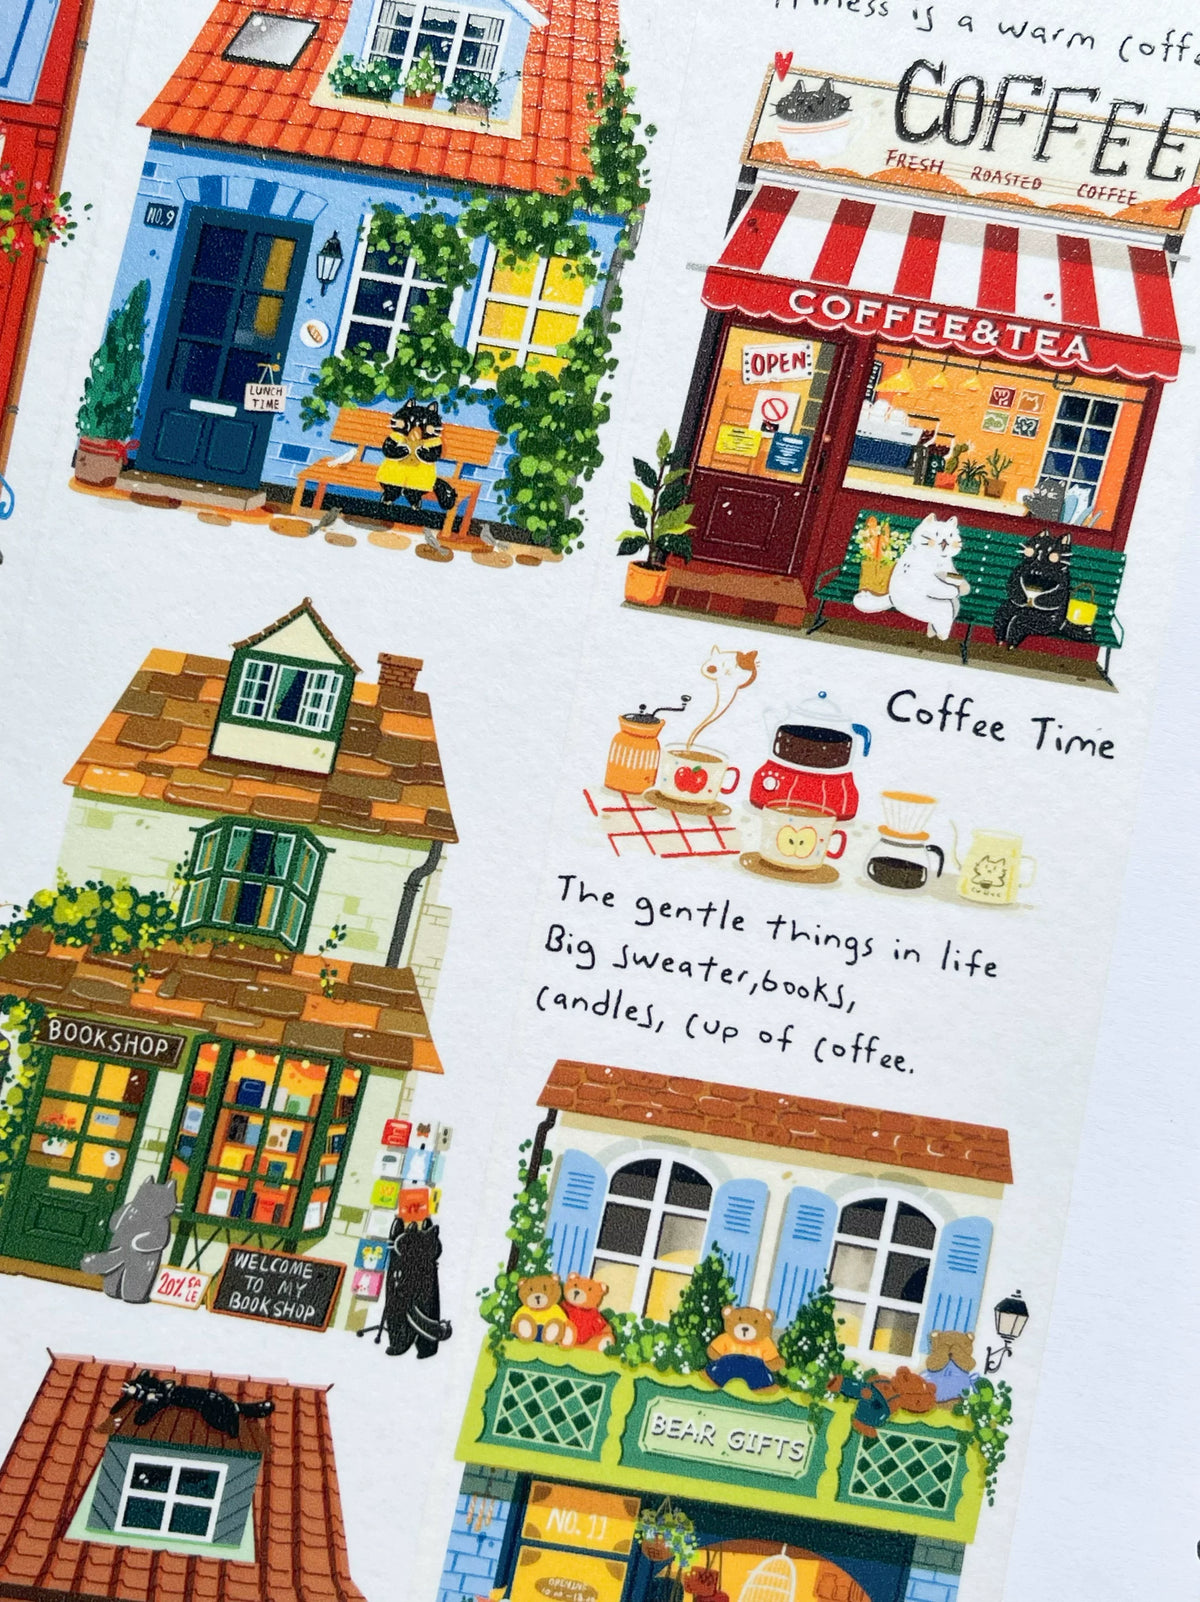 is a warm
COFFEE
FRESH ROASTED COFFEE
COFFEE&TEA
OPEN
NO.9
LUNCH
TIME
Coffee Time
The gentle things in life
Big sweater,books,
candles, cup of coffee.
BOOKSHOP
20% SA
LE
WELCOME
TO MY
BOOKSHOP
BEAR GIFTS
NO. 11
OPENING